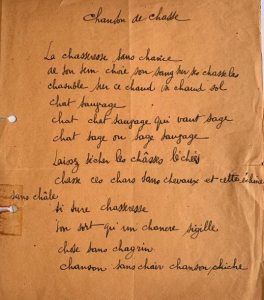 Chanson de chasse
La chasseresse sans chance
de son sein choie son sang sur ses chasselas
chasuble sur ce chaud si chaud sol
chat sauvage
chat chat sauvage qui vaut sage
chat sage ou sage sauvage
Laissez sécher les châsses léchées
chasse ces chars sans chevaux et cette échine
sans châle
si sûre chasseresse
son sort qu'un chancre sigille
chose sans chagrin
chanson sans chair chanson chiche